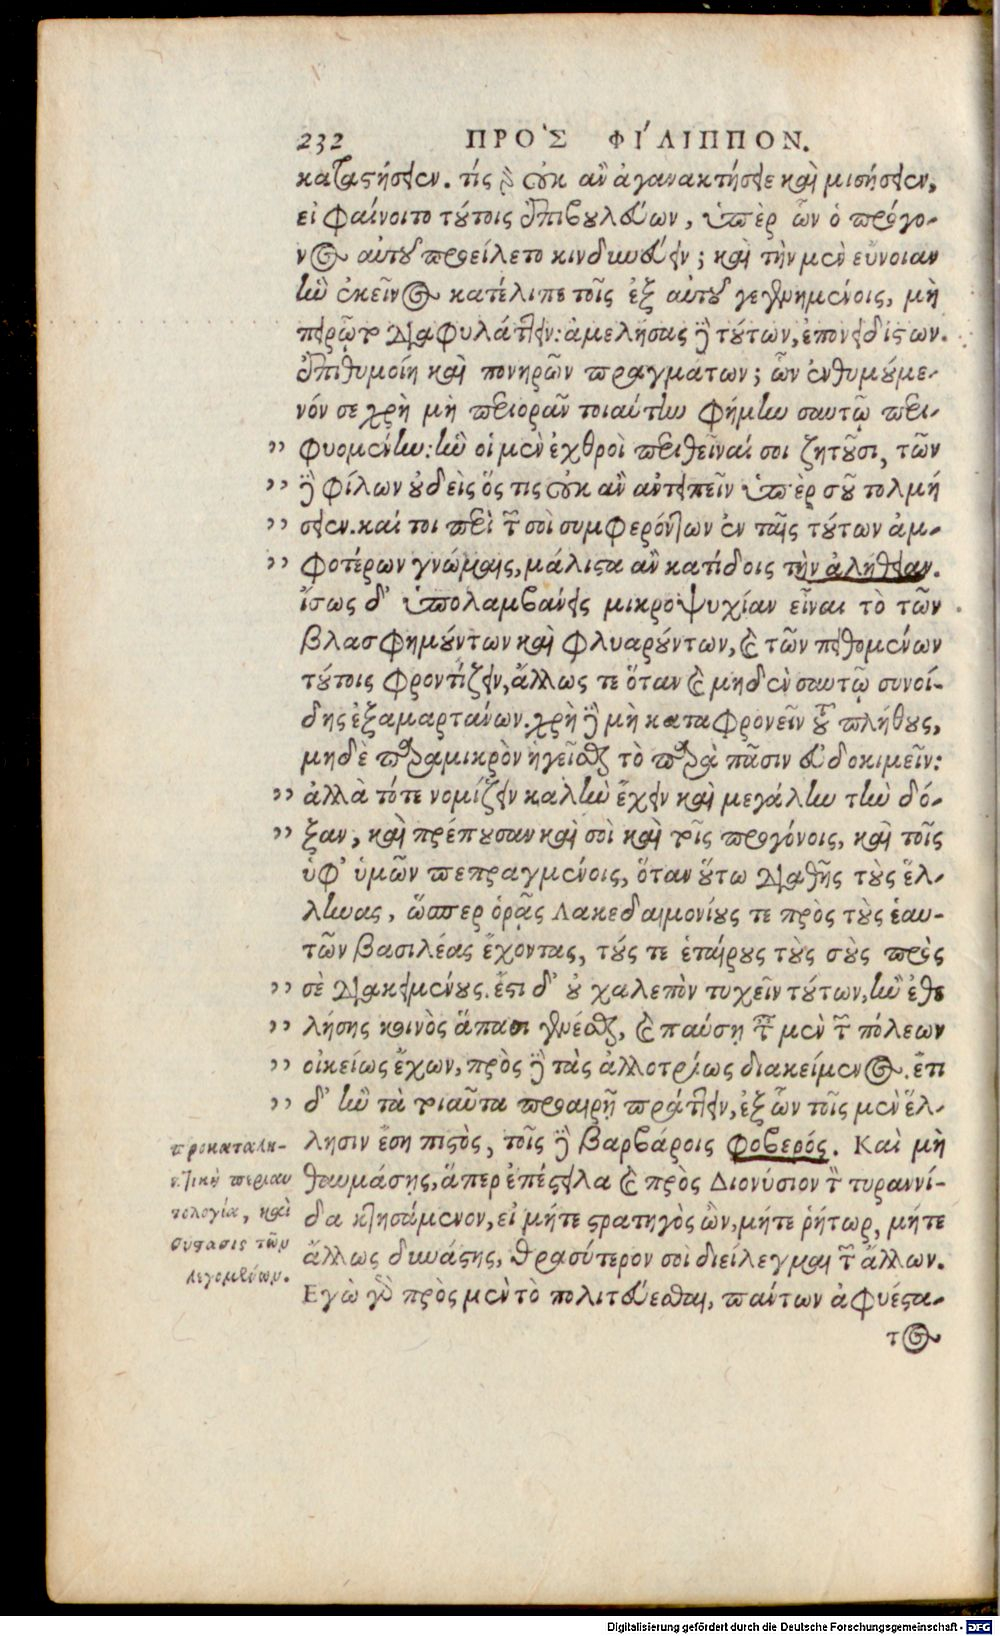 232 ΠΡΟ᾽Σ ΦΙ´ΛΙΠΠΟΝ.
καταστήσειεν. τίς δὲ οὐκ ἂν ἀγανακτήσειε καὶ μισήσειεν,
εἰ φαίνοιτο τούτοις ἐπιβουλεύων, ὑπὲρ ὧν ὁ πρόγο-
νος αὐτοῦ προείλετο κινδυνεύειν; καὶ τὴν μὲν εὔνοιαν
ἣν ἐκεῖνος κατέλιπε τοῖς ἐξ αὐτοῦ γεγενημένοις, μὴ
πειρῷτο διαφυλάττειν: ἀμελήσας δὲ τούτων, ἐπονειδίστων
ἐπιθυμοίη καὶ πονηρῶν πραγμάτων; ὧν ἐνθυμούμε-
νόν σε χρὴ μὴ περιορᾶν τοιαύτην φήμην σαυτῷ περι-
" φυομένην: ἣν οἱ μὲν ἐχθροὶ περιθεῖναί σοι ζητοῦσι, τῶν
" δὲ φίλων οὐδεὶς ὅς τις οὐκ ἂν ἀντειπεῖν ὑπὲρ σοῦ τολμή
" σειεν. καί τοι περὶ τῶν σοὶ συμφερόντων ἐν ταῖς τούτων ἀμ-
" φοτέρων γνώμαις, μάλιστα ἂν κατίδοις τὴν ἀλήθειαν.
ἴσως δ᾽ ὑπολαμβάνεις μικροψυχίαν εἶναι τὸ τῶν
βλασφημούντων καὶ φλυαρούντων, καὶ τῶν πειθομένων
τούτοις φροντίζειν, ἄλλως τε ὅταν καὶ μηδὲν σαυτῷ συνοί-
δης ἐξαμαρτάνων. χρὴ δὲ μὴ καταφρονεῖν τοῦ πλήθους,
μηδὲ παραμικρὸν ἡγεῖσθαι τὸ παρὰ πᾶσιν εὐδοκιμεῖν:
" ἀλλὰ τότε νομίζειν καλὴν ἔχειν καὶ μεγάλην τὴν δό-
" ξαν, καὶ πρέπουσαν καὶ σοὶ καὶ τοῖς προγόνοις, καὶ τοῖς
ὑφ᾽ ὑμῶν πεπραγμένοις, ὅταν οὕτω διαθῇς τοὺς ἕλ-
ληνας, ὥσπερ ὁρᾷς Λακεδαιμονίους τε πρὸς τοὺς ἑαυ-
τῶν βασιλέας ἔχοντας, τούς τε ἑταίρους τοὺς σοὺς πρὸς
" σὲ διακειμένους. ἔστι δ᾽ οὐ χαλεπὸν τυχεῖν τούτων, ἢν ἐθε
" λήσης κοινὸς ἅπασι γενέσθαι, καὶ παύσῃ τῶν μὲν τῶν πόλεων
" οἰκείως ἔχων, πρὸς δὲ τὰς ἀλλοτρίως διακείμενος. ἔτι
" δ᾽ ἢν τὰ τοιαῦτα προαιρῇ πράττειν, ἐξ ὧν τοῖς μὲν ἕλ-
λησιν ἔσῃ πιστὸς, τοῖς δὲ βαρβάροις φοβερός. Καὶ μὴ
θαυμάσῃς, ἅπερ ἐπέστειλα καὶ πρὸς Διονύσιον τὴν τυραννί-
δα κτησάμενον, εἰ μήτε στρατηγὸς ὢν, μήτε ῥήτωρ, μήτε
ἄλλως δυνάστης, θρασύτερον σοὶ διείλεγμαι τῶν ἄλλων.
Ἐγὼ γὰρ πρὸς μὲν τὸ πολιτεύεσθαι, πάντων ἀφυέστα-
τος
προκαταλη-
πτικὴ περιαυ
τολογία, καὶ
σύστασις τῶν
λεγομένων.
Digitalisierung gefördert durch die Deutsche Forschungsgemeinschaft - DFG